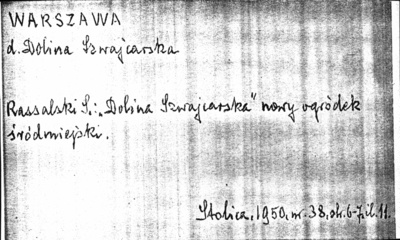 WARSZAWA
d. Dolina Szwajcarska
Rassalski S.: "Dolina Szwajcarska" nowy ogródek
śródmiejski.
Stolica, 1950, nr. 38, str. 6-7, il. 11.